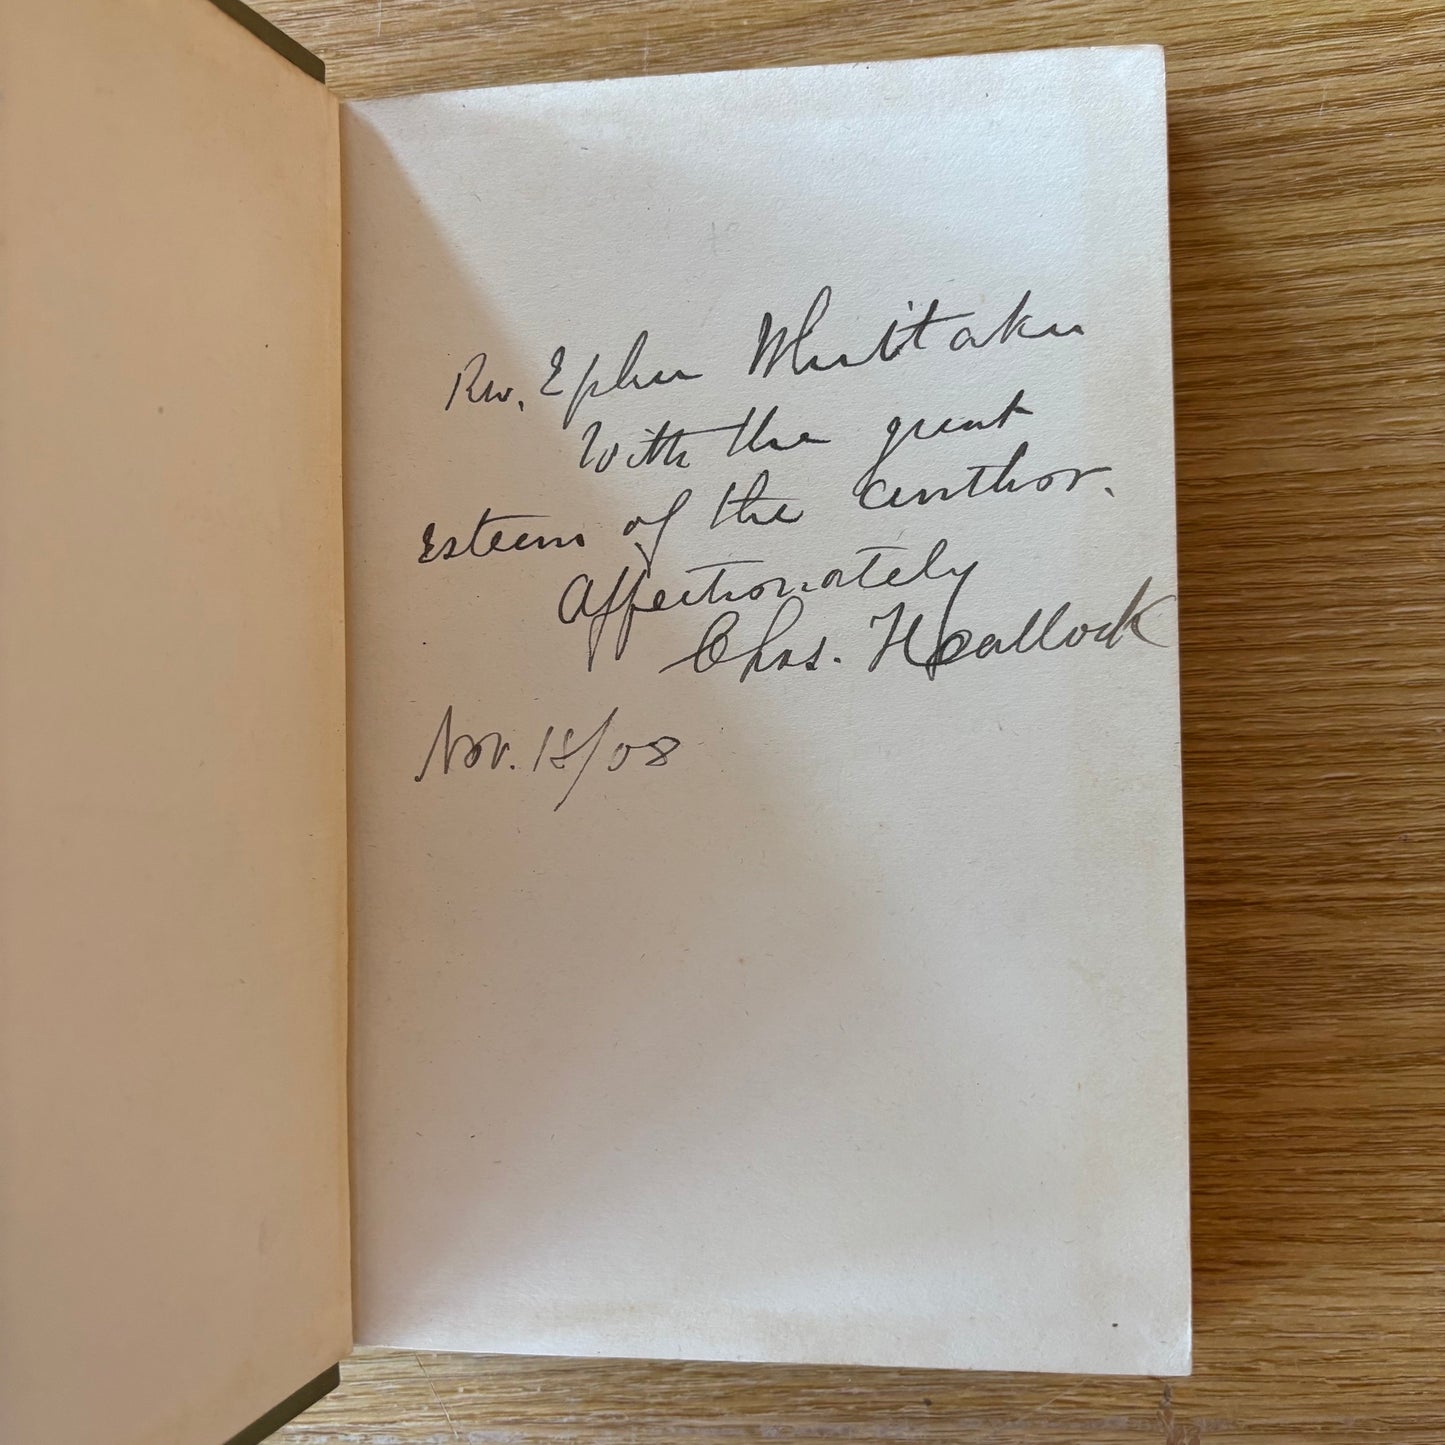 Rev. Epher Whittaker
With the great
Esteem of the author.
Affectionately
Chas. Hallock
Nov. 18/08